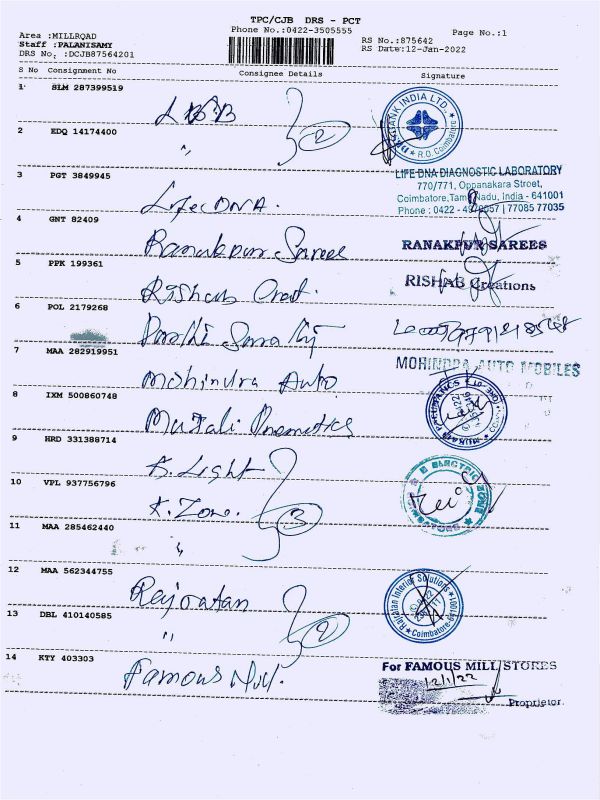 TPC/CJB DRS - PCT
Area :MILLROAD
Phone No.:0422-3505555
Page No.:1
Staff :PALANISAMY
RS No.:875642
DRS No. :DCJB87564201
RS Date:12-Jan-2022
S No Consignment No Consignee Details Signature
1 SLM 287399519
BANK INDIA LTD.
R.O. Coimbatore
2 EDQ 14174400
"
2
3 PGT 3849945
Life DNA.
LIFE DNA DIAGNOSTIC LABORATORY
770/771, Oppanakara Street,
Coimbatore, Tamil Nadu, India - 641001
Phone : 0422 - 77085 77035
4 GNT 82409
Ranakpur Sarees
RANAKPUR SAREES
5 PPK 199361
Rishab Creat.
RISHAB Creations
6 POL 2179268
7 MAA 282919951
Mohindra Auto
MOHINDRA AUTO MOBILES
8 IXM 500860748
9 HRD 331388714
Light
ELECTRIC ZONE
10 VPL 937756796
Zone.
3
11 MAA 285462440
"
12 MAA 562344755
Rajratan
Rajratan Interior Solutions
Coimbatore
13 DBL 410140585
"
2
14 KTY 403303
Famous Mill.
For FAMOUS MILL STORES
12/1/22
Proprietor.